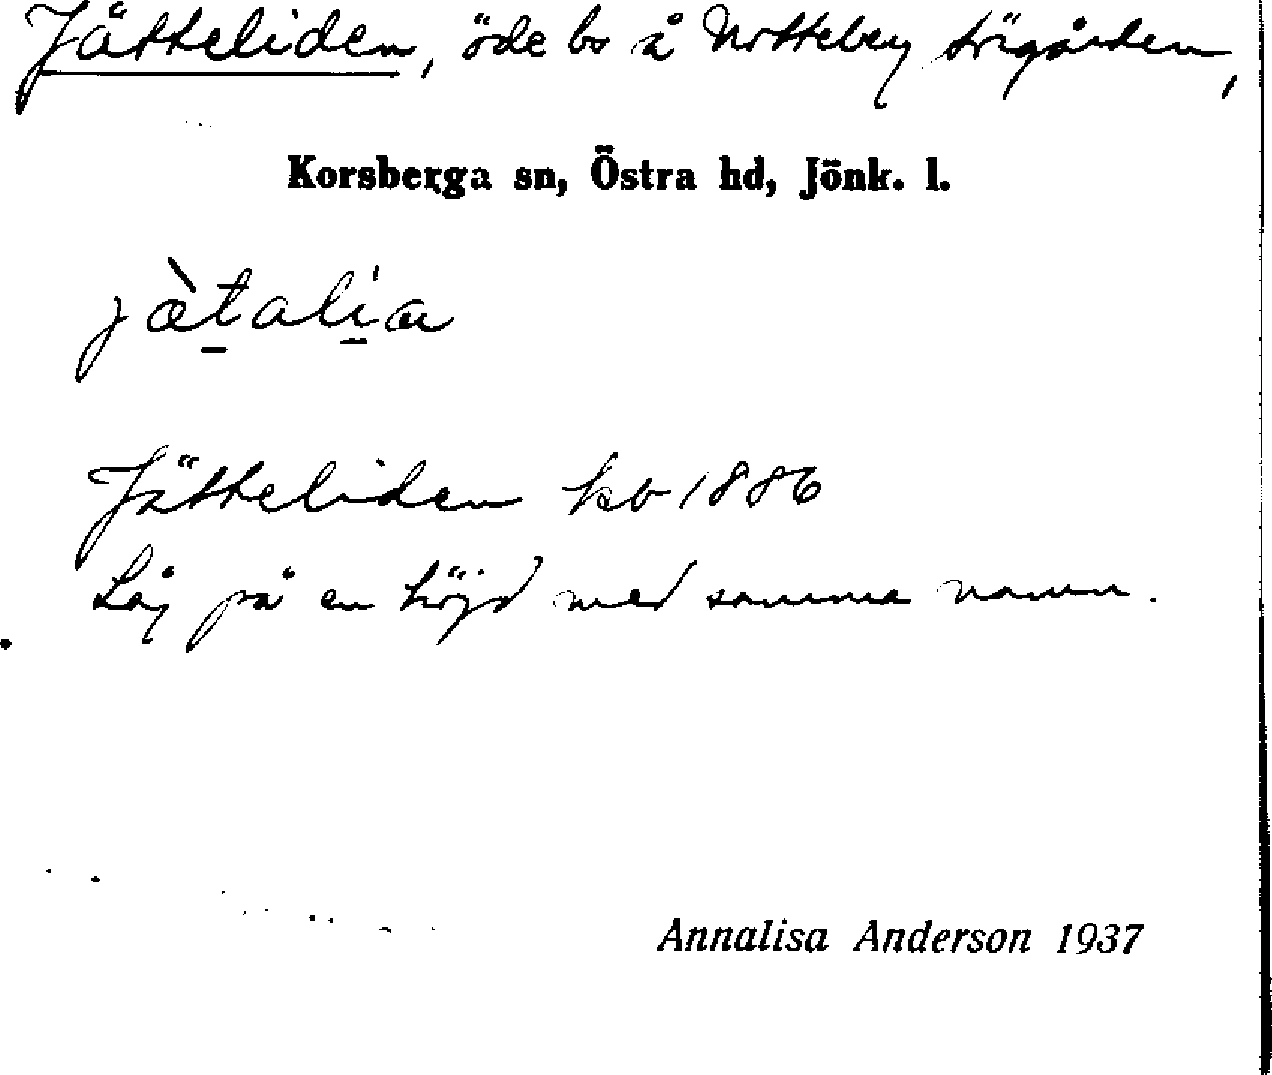 Jätteliden, öde bs å Nottebäy Högården,
Korsberga sn, Östra hd, Jönk. l.
jæ̀talia
Jätteliden kb 1886
Låg på en höjd med samma namn.
Annalisa Anderson 1937